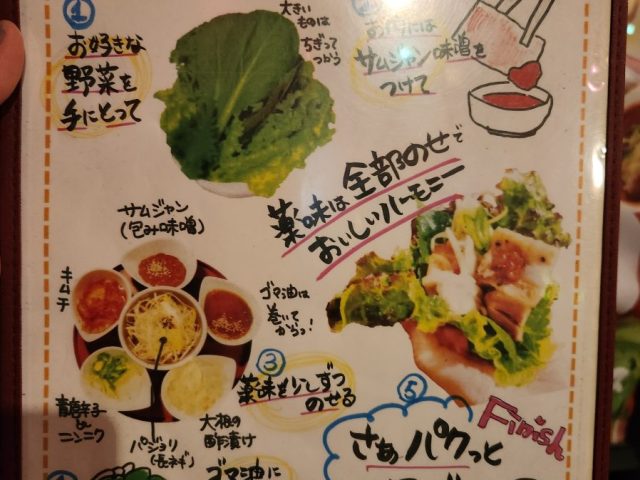 ①
お好きな
野菜を
手にとって
大きい
ものは
ちぎって
つかう
お肉には
サムジャン味噌を
つけて
薬味は全部のせで
おいしいハーモニー
サムジャン
(包み味噌)
キムチ
ゴマ油は
巻いて
からっ!
青唐辛子
ニンニク
パジョリ
(長ネギ)
大根の
酢漬け
③
薬味を少しずつ
のせる
ゴマ油に
⑤
Finish
さぁ パクっと